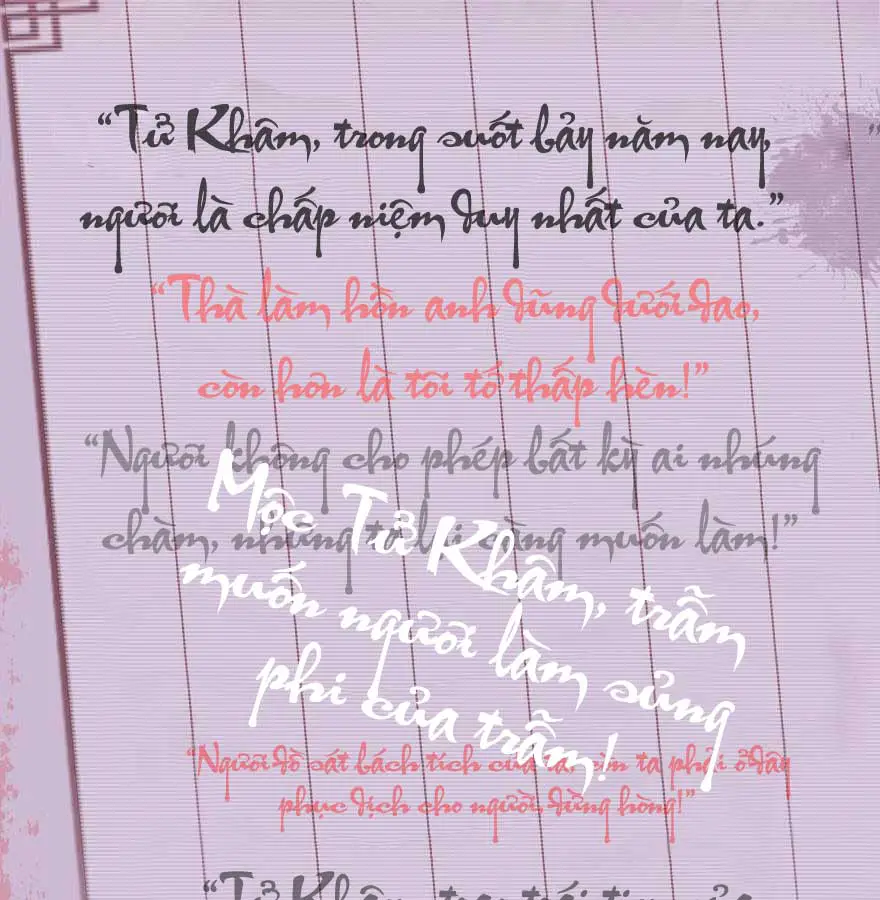 “Tử Khâm, trong suốt bảy năm nay,
ngươi là chấp niệm duy nhất của ta.”
“Thà làm hồn anh dũng dưới đao,
còn hơn là tôi tớ thấp hèn!”
“Ngươi không cho phép bất kỳ ai nhúng
chàm, nhưng ta lại càng muốn làm!”
Mộc Tử Khâm, trẫm
muốn ngươi làm sủng
phi của trẫm!
“Ngươi đồ sát bách tích của ta, còn ta phải ở đây
phục dịch cho ngươi, đừng hòng!”
“Tử Khâm, trao trái tim của